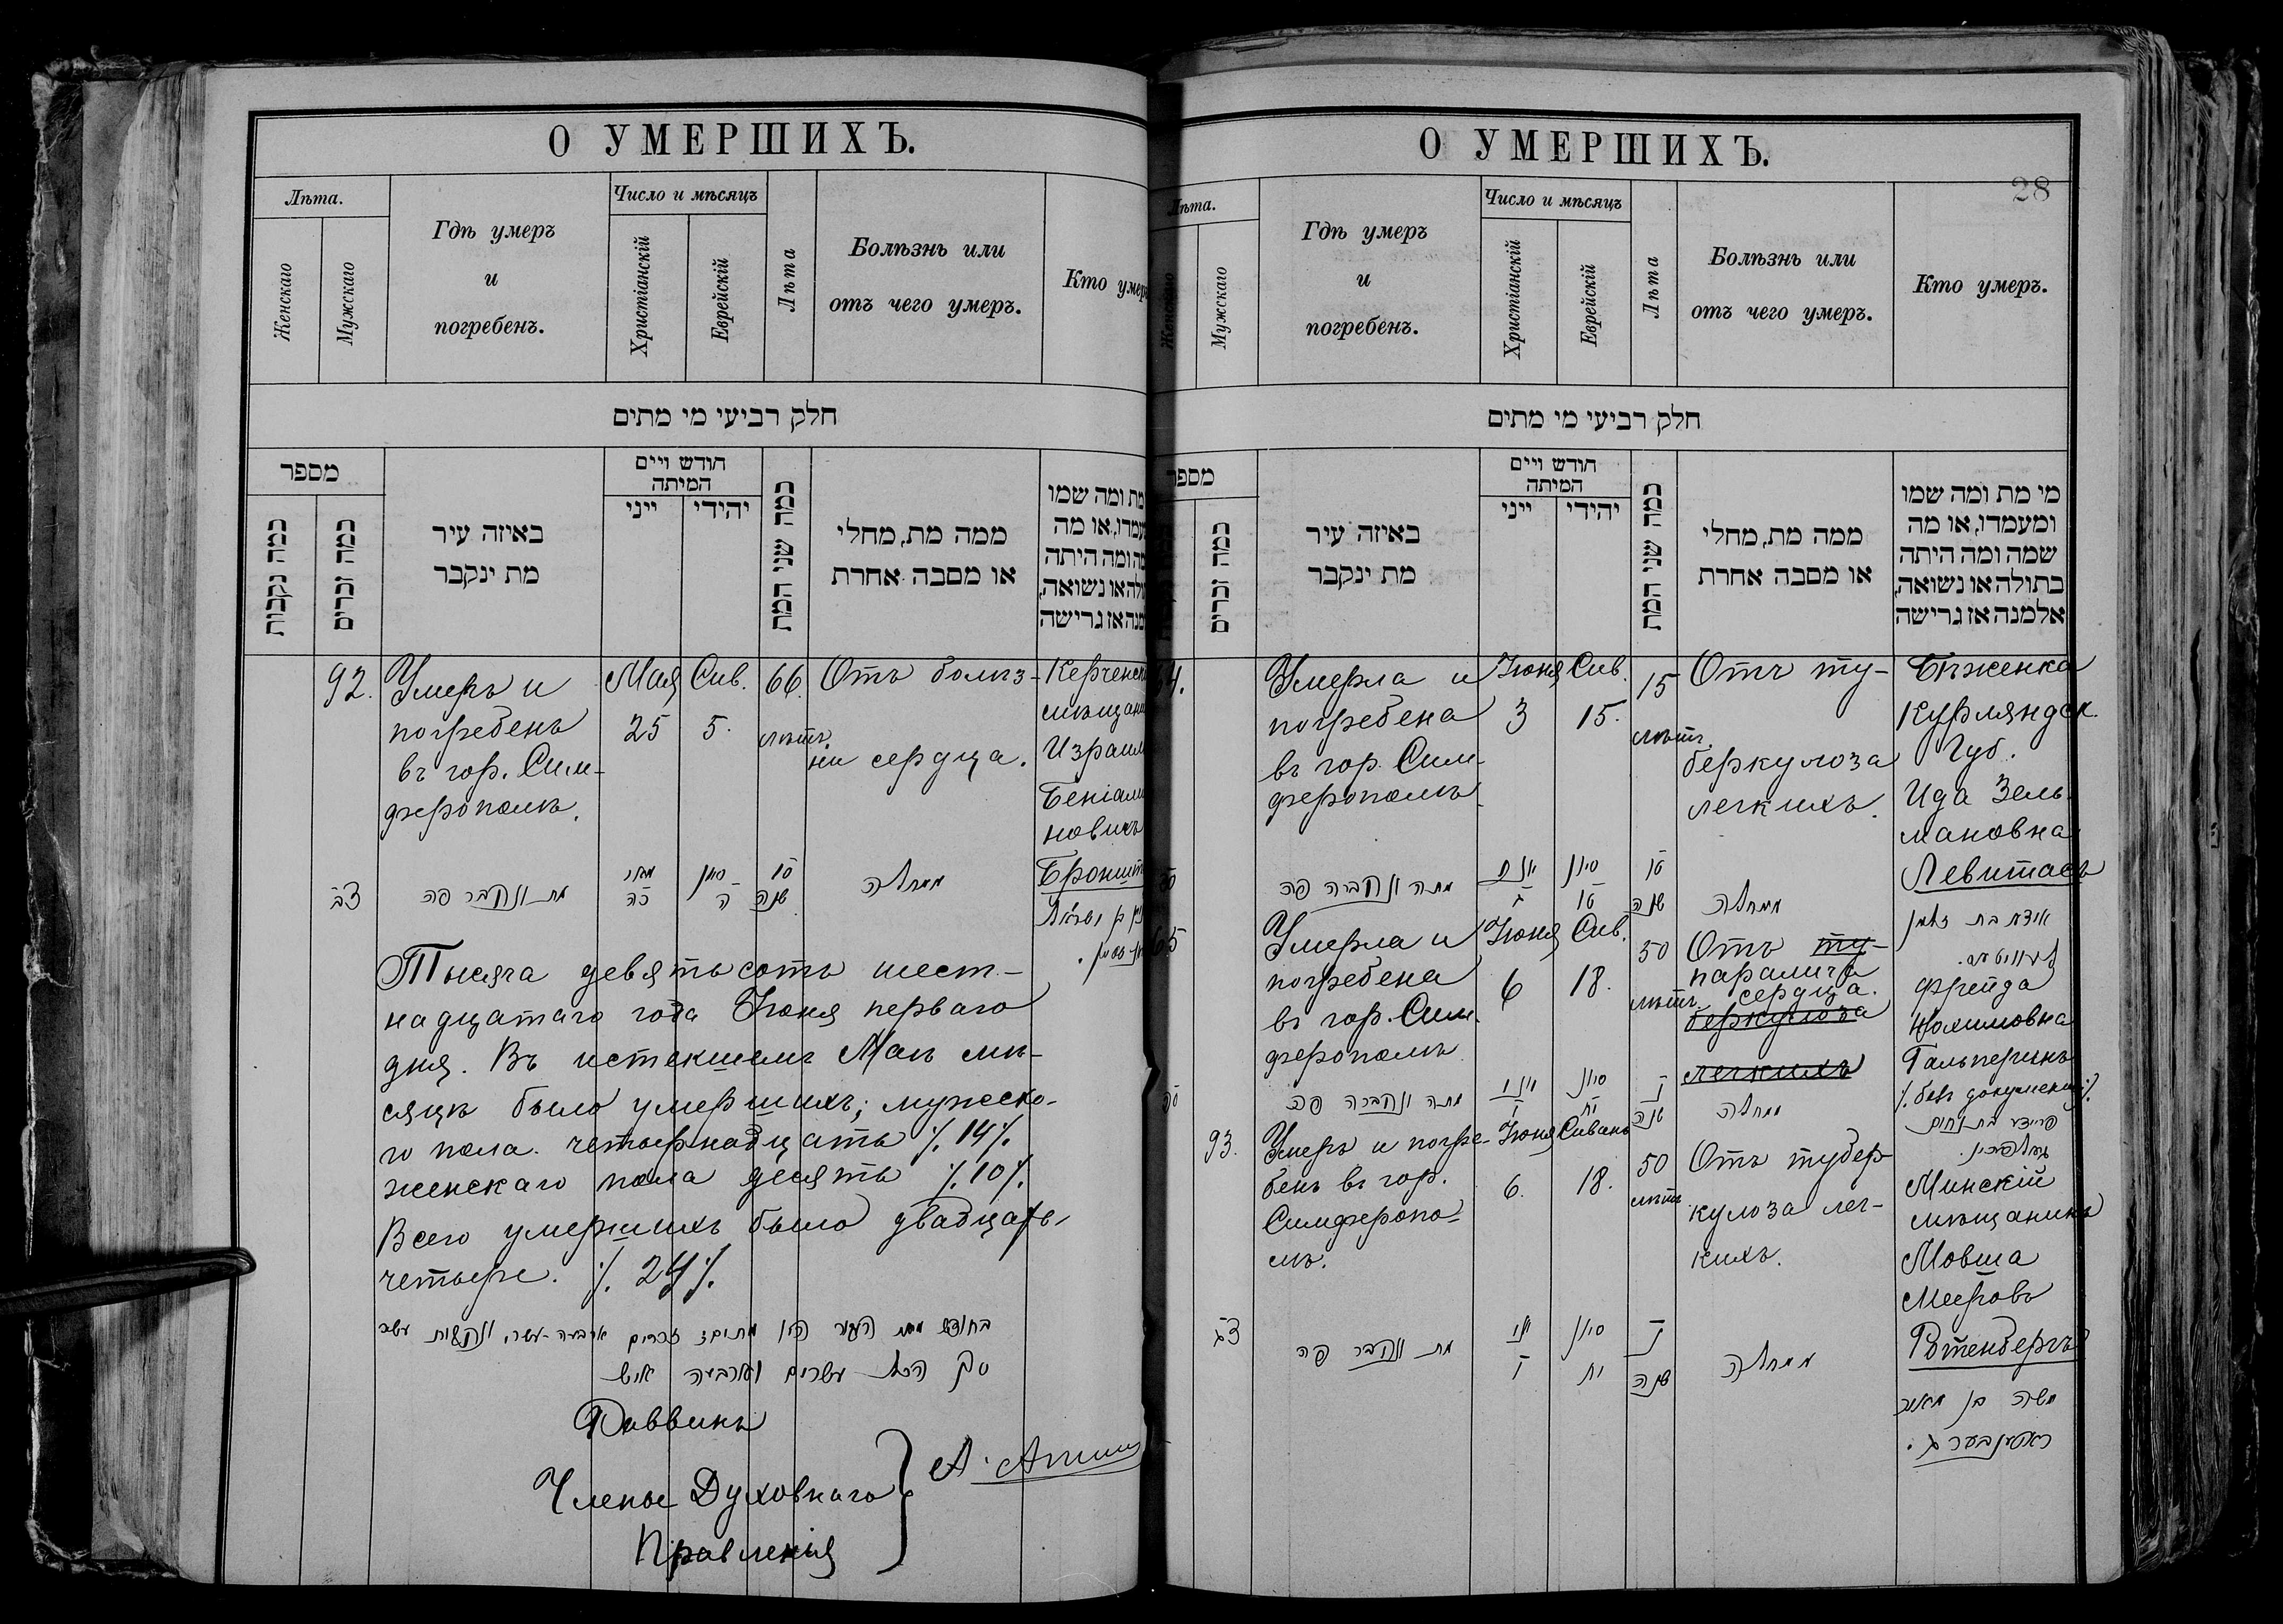 О УМЕРШИХЪ.
Лѣта.
Женскаго
Мужскаго
Гдѣ умеръ
и
погребенъ.
Число и мѣсяцъ
Христіанскій
Еврейскій
Лѣта
Болѣзнь или
отъ чего умеръ.
Кто умеръ
חלק רביעי מי מתים
מספר
כמה נקבות
כמה זכרים
באיזה עיר
מת ינקבר
חודש ויים
המיתה
ייני
יהודי
כמה שני המת
ממה מת, מחלי
או מסבה אחרת
מת ומה שמו
92.
Умеръ и
погребенъ
въ гор. Сим-
ферополѣ.
Мая
25
Сив.
5.
66
лѣтъ
Отъ болѣз-
ни сердца.
Керченск
мѣщани
Израил
Беніами
новичъ
Броншт
צב
מת ונקבר פה
כה
סיון
ה
סו
שנה
ממחלה
Тысяча девятьсотъ шест-
надцатаго года Іюня перваго
дня. Въ истекшемъ Маѣ мѣ-
сяцѣ было умершихъ; мужско-
го пола. четырнадцать ٪ 14 ٪
женскаго пола десять ٪ 10 ٪
Всего умершихъ было двадцать
четыре. ٪ 24 ٪
סך הכל עשרים וארבעה איש
Раввинъ
Члены Духовнаго
Правленія
О УМЕРШИХЪ.
28
Лѣта.
Женскаго
Мужскаго
Гдѣ умеръ
и
погребенъ.
Число и мѣсяцъ
Христіанскій
Еврейскій
Лѣта
Болѣзнь или
отъ чего умеръ.
Кто умеръ.
חלק רביעי מי מתים
מספר
כמה זכרים
באיזה עיר
מת ינקבר
חודש ויים
המיתה
ייני
יהודי
כמה שני המת
ממה מת, מחלי
או מסבה אחרת
מי מת ומה שמו
ומעמדו, או מה
שמה ומה היתה
בתולה או נשואה,
אלמנה אז גרישה
64.
Умерла и
погребена
въ гор. Сим-
ферополѣ
Іюня
3
Сив.
15.
15
лѣтъ
Отъ ту-
беркулоза
легкихъ.
Бѣженка
Курляндск.
Губ.
Ида Зель-
мановна
Левитасъ
מתה ונקברה פה
יוני
ג
סיון
טו
טו
שנה
ממחלה
אידא בת זלמן
65
Умерла и
погребена
въ гор. Сим-
ферополѣ
Іюня
6
Сив.
18.
50
лѣтъ
Отъ ту-
паралича
сердца.
беркулоза
легкихъ
Фрейда
Нохимовна
Гальперинъ
٪ безъ документ. ٪
מתה ונקברה פה
יוני
ו
סיון
יח
נ
שנה
ממחלה
פריידא בת נחום
93.
Умеръ и погре-
бенъ въ гор.
Симферопо-
лѣ.
Іюня
6.
Сивана
18.
50
лѣтъ
Отъ тубер-
кулоза лег-
кихъ.
Минскій
мѣщанинъ
Мовша
Мееровъ
Ротенбергъ
צג
מת ונקבר פה
יוני
ו
סיון
יח
נ
שנה
ממחלה
משה בן מאיר
ראטענבערג.